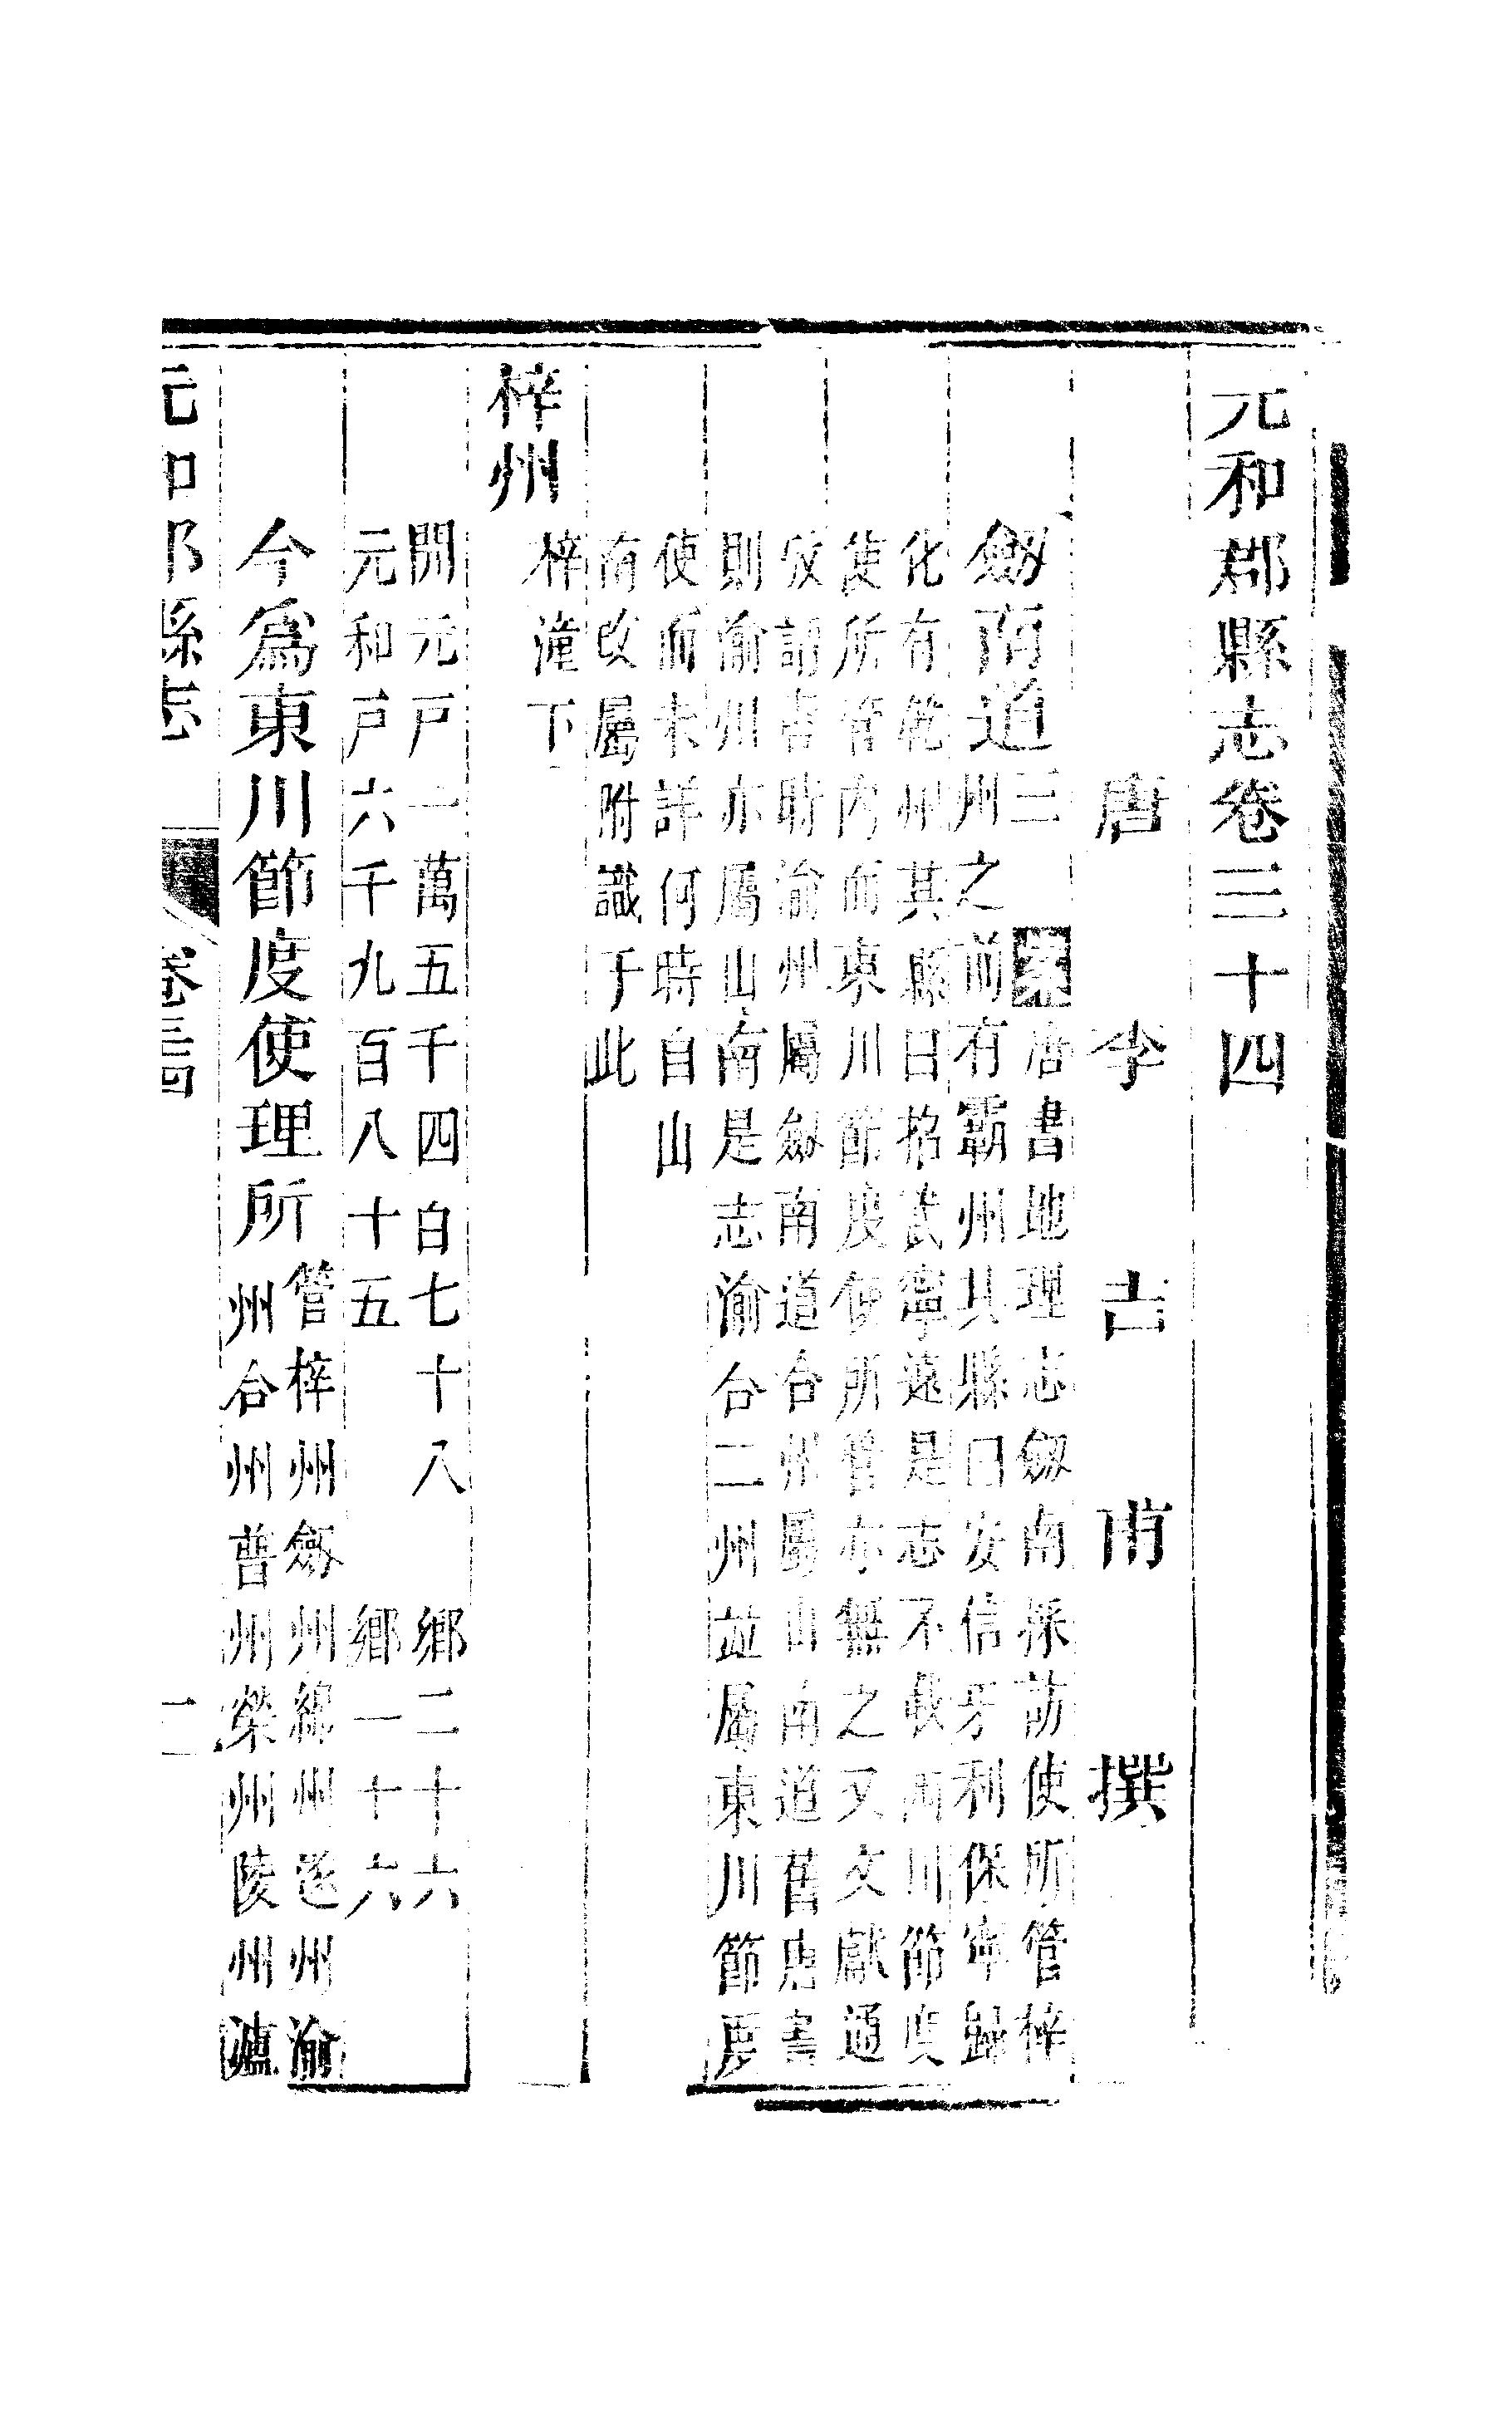 元和郡縣志卷三十四
唐李吉甫撰
劔南道三案唐書地理志劔南採訪使所管梓
州之前有霸州其縣曰安信牙利保寧歸
化有乾州其縣曰招武寧遠是志不載西川節度
使所管內而東川節度使所管亦無之又文獻通
攷謂唐時渝州屬劔南道合州屬山南道舊唐書
則渝州亦屬山南是志渝合二州竝屬東川節度
使而未詳何時自山
南改屬附識于此
梓州梓潼下
開元戸一萬五千四百七十八 鄉二十六
元和戸六千九百八十五 鄉一十六
今爲東川節度使理所管梓州劔州綿州遂州渝
州合州普州榮州陵州瀘
元和郡縣志 卷三十四 一